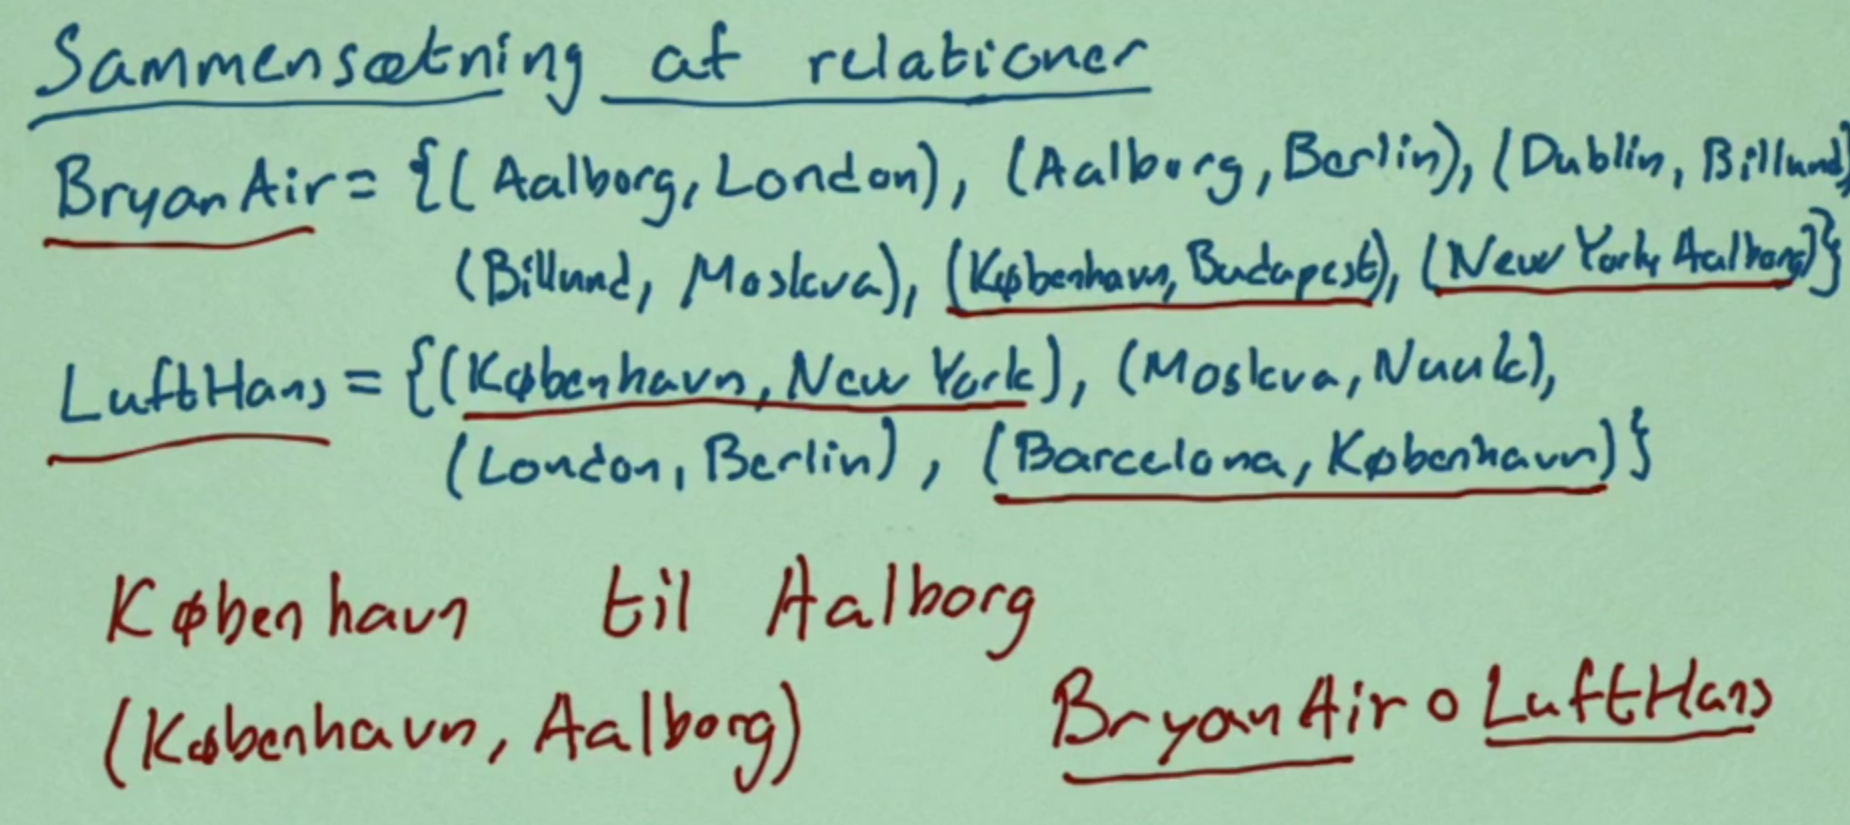 Sammensætning af relationer
BryanAir = {(Aalborg, London), (Aalborg, Berlin), (Dublin, Billund)
(Billund, Moskva), (København, Budapest), (New York, Aalborg)}
LuftHans = {(København, New York), (Moskva, Nuuk),
(London, Berlin), (Barcelona, København)}
København til Aalborg
(København, Aalborg) BryanAir ∘ LuftHans